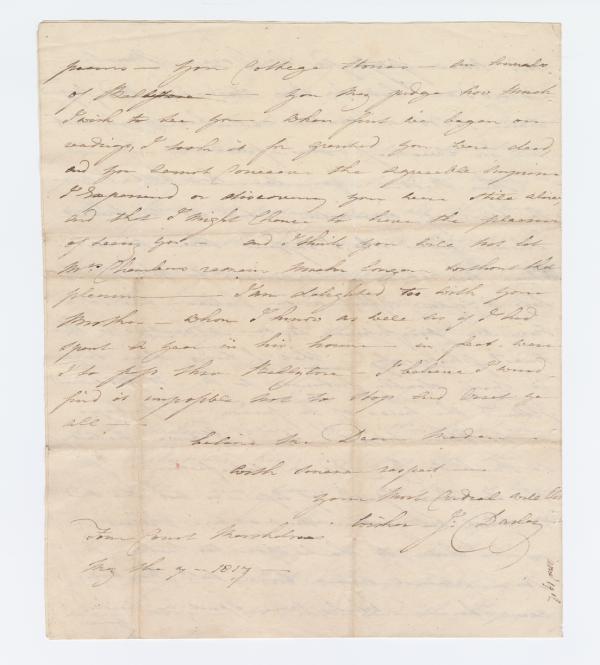 poems — your Cottage Stories — an Annals
of Ballitore — — you may judge how much
I wish to see you — When first we began our
readings, I took it for granted you were dead,
and you cannot conceive the agreeable surprise
I experienced on discovering you were still alive
and that I might chance to have the pleasure
of seeing you — and I think you will not let
Mrs Chambers remain much longer without that
pleasure — I am delighted too with your
Brother — whom I know as well as if I had
spent a year in his house — in fact were
I to pass thro Ballytore — I believe I would
find it impossible not to stop and visit ye
all —
believe me Dear Madam
with sincere respect —
your most cordial well
wisher J. Darley
Four Court Marshalsea
May the 9 — 1817 —